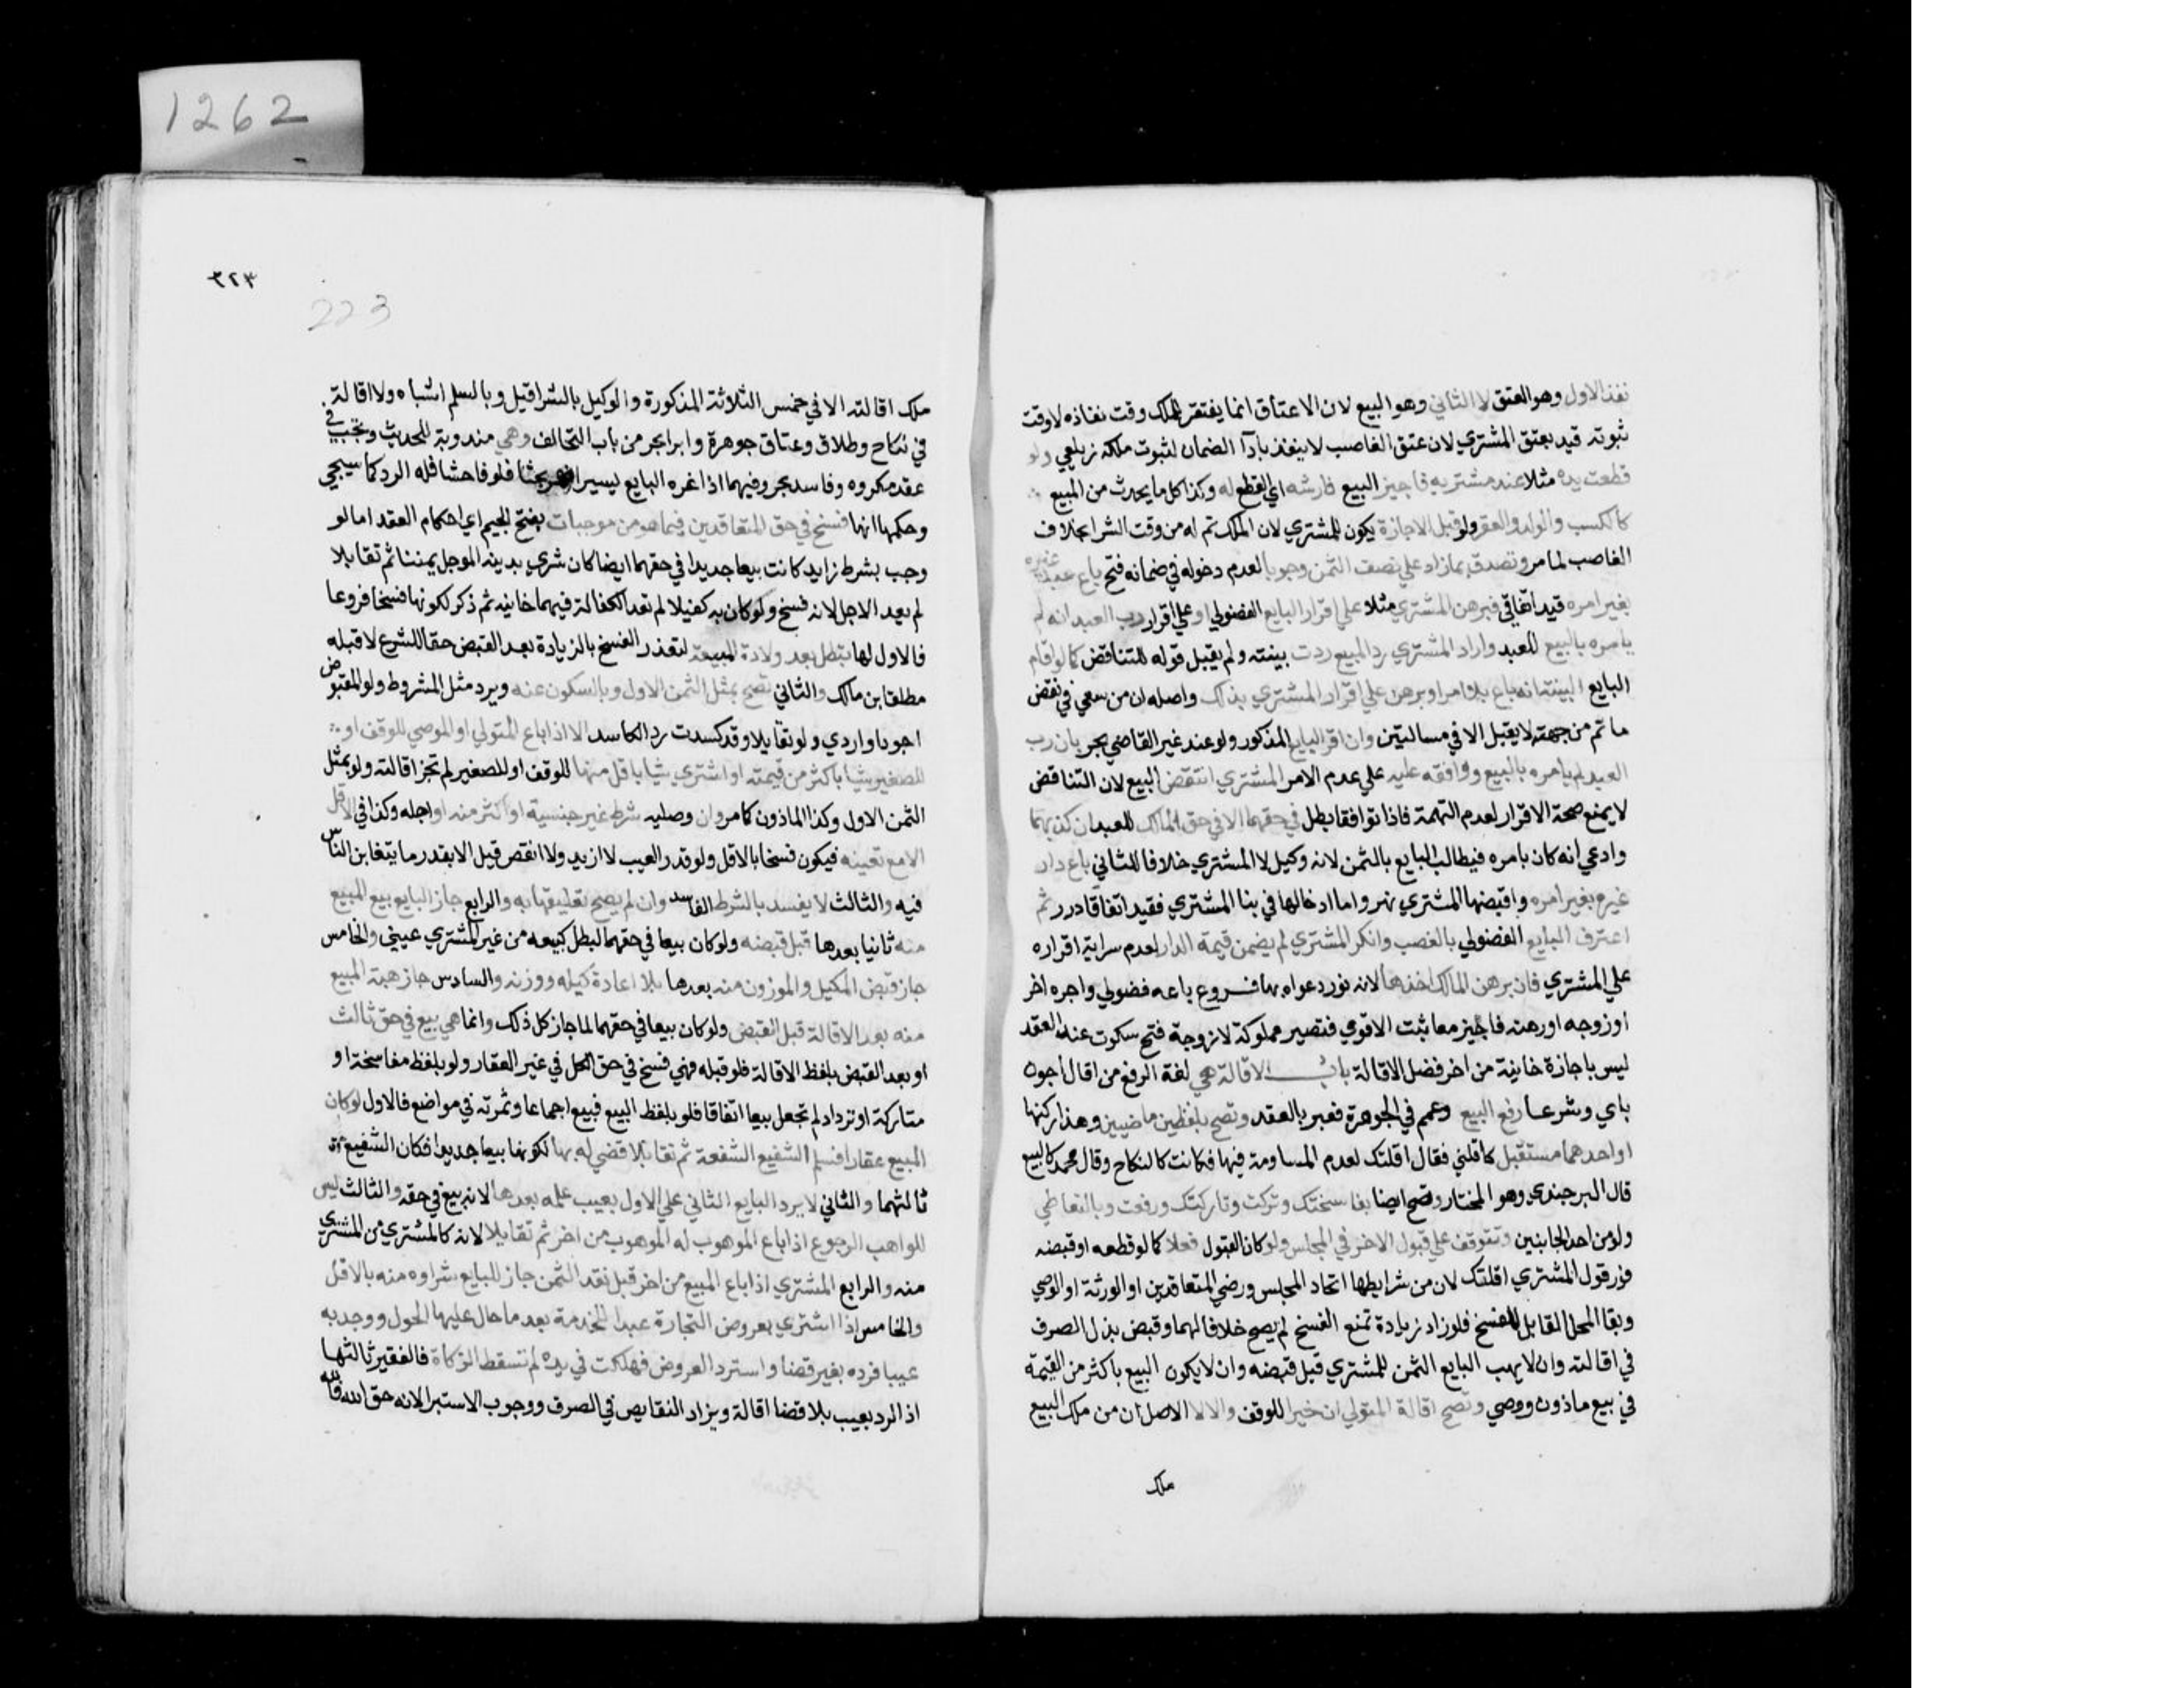 1262
نفذ الاول وهو العتق لا الثاني وهو البيع لان الاعتاق انما يفتقر للملك وقت نفاذه لا وقت
ثبوته قيد بعتق المشتري لان عتق الغاصب لا ينفذ بادآ الضمان لثبوت ملكه زيلعي ولو
قطعت يده مثلا عند مشتريه فاجيز البيع فارشه اي القطع له وكذا كل ما يحدث من المبيع
كالكسب والولد والعقر ولو قبل الاجازة يكون للمشتري لان الملك تم له من وقت الشرا بخلاف
الغاصب لما مر وتصدق بما زاد علي نصف الثمن وجوبا لعدم دخوله في ضمانه فتح باع عبد غيره
بغير امره قيد اتفاقي فبرهن المشتري مثلا علي اقرار البايع الفضولي او علي اقرار رب العبد انه لم
يامره بالبيع للعبد واراد المشتري رد المبيع ردت بينته ولم يقبل قوله للتناقض كما لو اقام
البايع البينة انه باع بلا امر او برهن علي اقرار المشتري بذلك واصله ان من سعي في نقض
ما تم من جهته لا يقبل الا في مسالتين وان اقر البايع المذكور ولو عند غير القاضي بحر بان رب
العبد لم يامره بالبيع ووافقه عليه علي عدم الامر المشتري انتقض البيع لان التناقض
لا يمنع صحة الاقرار لعدم التهمة فاذا توافقا بطل في حقهما لا في حق المالك للعبد ان كذبهما
وادعي انه كان بامره فيطالب البايع بالثمن لانه وكيل لا المشتري خلافا للثاني باع دار
غيره بغير امره واقبضها المشتري نهر واما ادخالها في بنا المشتري فقيد اتفاقا درر ثم
اعترف البايع الفضولي بالغصب وانكر المشتري لم يضمن قيمة الدار لعدم سراية اقراره
علي المشتري فان برهن المالك اخذها لانه نور دعواه بها فروع باعه فضولي واجره اخر
او زوجه او رهنه فاجيز معا ثبت الاقوي فتصير مملوكة لا زوجة فتح سكوت عند العقد
ليس باجازة خانية من اخر فصل الاقالة باب الاقالة هي لغة الرفع من اقال اجوف
باي وشرعا رفع البيع وعمم في الجوهرة فعبر بالعقد وتصح بلفظين ماضيين وهذا ركنها
او احدهما مستقبل كاقلني فقال اقلتك لعدم المساومة فيها فكانت كالنكاح وقال محمد كالبيع
قال البرجندي وهو المختار وتصح ايضا بفاسختك وتركت وتاركتك ورفعت وبالتعاطي
ولو من احد الجانبين وتتوقف علي قبول الاخر في المجلس ولو كان القبول فعلا كما لو قطعه او قبضه
فور قول المشتري اقلتك لان من شرايطها اتحاد المجلس ورضي المتعاقدين او الورثة او الوصي
وبقا المحل القابل للفسخ فلو زاد زيادة تمنع الفسخ لم يصح خلافا لهما وقبض بدل الصرف
في اقالته وان لا يهب البايع الثمن للمشتري قبل قبضه وان لا يكون البيع باكثر من القيمة
في بيع ماذون ووصي وتصح اقالة المتولي ان خيرا للوقف والا لا الاصل ان من ملك البيع
ملك
٣٢٣
223
ملك اقالته الا في خمس الثلاثة المذكورة والوكيل بالشرا قيل وبالسلم اشباه ولا اقالة
في نكاح وطلاق وعتاق جوهرة وابرا بحر من باب التحالف وهي مندوبة للحديث وتجب في
عقد مكروه وفاسد بحر وفيهما اذا غره البايع يسيرا نهر بحثا فلو فاحشا فله الرد كما سيجي
وحكمها انها فسخ في حق المتعاقدين فيما هو من موجبات بفتح الجيم اي احكام العقد اما لو
وجب بشرط زايد كانت بيعا جديدا في حقهما ايضا كان شري بدينه الموجل عينا ثم تقايلا
لم يعد الاجل لانه فسخ ولو كان به كفيلا لم تعد الكفالة فيهما خانيه ثم ذكر لكونها فسخا فروعا
فالاول لها تبطل بعد ولادة المبيعة لتعذر الفسخ بالزيادة بعد القبض حقا للشرع لا قبله
مطلقا بن مالك والثاني تصح بمثل الثمن الاول وبالسكون عنه ويرد مثل المشروط ولو المقبوض
اجود او اردي ولو تقايلا وقد كسدت رد الكاسد الا اذا باع المتولي او الموصي للوقف او
للصغير شيا باكثر من قيمته او اشتري شيا باقل منها للوقف او للصغير لم تجز اقالته ولو بمثل
الثمن الاول وكذا الماذون كما مر وان وصليه شرط غير جنسية او اكثر منه او اجله وكذا في الاقل
الا مع تعيبه فيكون فسخا بالاقل ولو قدر العيب لا ازيد ولا انقص قيل الا بقدر ما يتغابن الناس
فيه والثالث لا يفسد بالشرط الفاسد وان لم يصح تعليقها به والرابع جاز البايع بيع المبيع
منه ثانيا بعدها قبل قبضه ولو كان بيعا في حقهما لبطل كبيعه من غير المشتري عيني والخامس
جاز قبض المكيل والموزون منه بعدها بلا اعادة كيله ووزنه والسادس جاز هبة المبيع
منه بعد الاقالة قبل القبض ولو كان بيعا في حقهما لما جاز كل ذلك وانما هي بيع في حق ثالث
او بعد القبض بلفظ الاقالة فلو قبله فهي فسخ في حق الكل في غير العقار ولو بلفظ مفاسخة او
متاركة او تراد لم تجعل بيعا اتفاقا فلو بلفظ البيع فبيع اجماعا وثمرته في مواضع فالاول لو كان
المبيع عقارا فسلم الشفيع الشفعة ثم تقايلا قضي له بها لكونها بيعا جديدا فكان الشفيع
ثالثهما والثاني لا يرد البايع الثاني علي الاول بعيب علمه بعدها لانه بيع في حقه والثالث ليس
للواهب الرجوع اذا باع الموهوب له الموهوب من اخر ثم تقايلا لانه كالمشتري من المشتري
منه والرابع المشتري اذا باع المبيع من اخر قبل نقد الثمن جاز للبايع شراوه منه بالاقل
والخامس اذا اشتري بعروض التجارة عبدا للخدمة بعد ما حال عليها الحول ووجد به
عيبا فرده بغير قضا واسترد العروض فهلكت في يده لم تسقط الزكاة فالفقير ثالثهما
اذ الرد بعيب بلا قضا اقالة ويزاد التقابض في الصرف ووجوب الاستبرا لانه حق الله